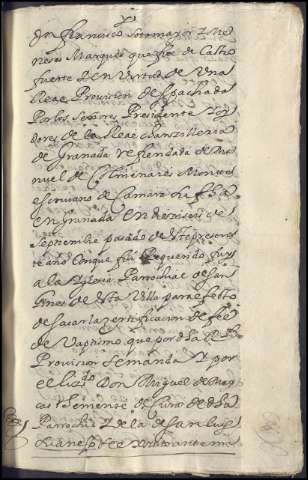 Don francisco sotomayor y me
neses Marques que fue de Castro
fuerte y en Virtud de Una
Real Provision despachada
Por los señores Presidente y oy
dores de la Real chanzilleria
de Granada refrendada de Ma
nuel de Colmenares Monroi
escriuano de Camara su fha
en granada en diez i seis de
septiembre pasado de este presen
te año Con que fui Requerido fui
a la Iglesia Parrochial de san
Gines de esta Villa para efecto
de sacar la zertificazion de fee
de Vaptismo que por dha Rl
Provision se manda Y por
el lizdo Don Miguel de
Cura de dha
Parrochia y de la de san luis
su anejo